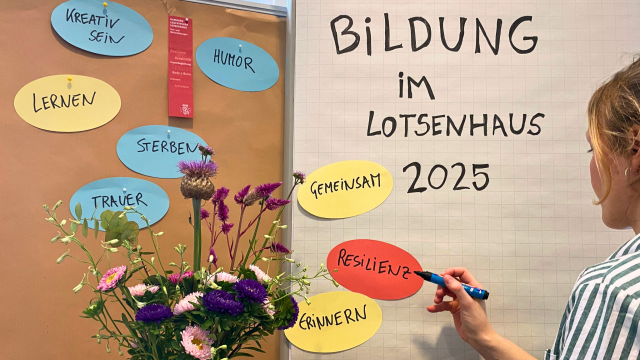 KREATIV
SEIN
HUMOR
LERNEN
STERBEN
TRAUER
BILDUNG
IM
LOTSENHAUS
2025
GEMEINSAM
RESILIENZ
ERINNERN